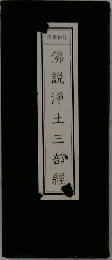 佛說淨土三部經